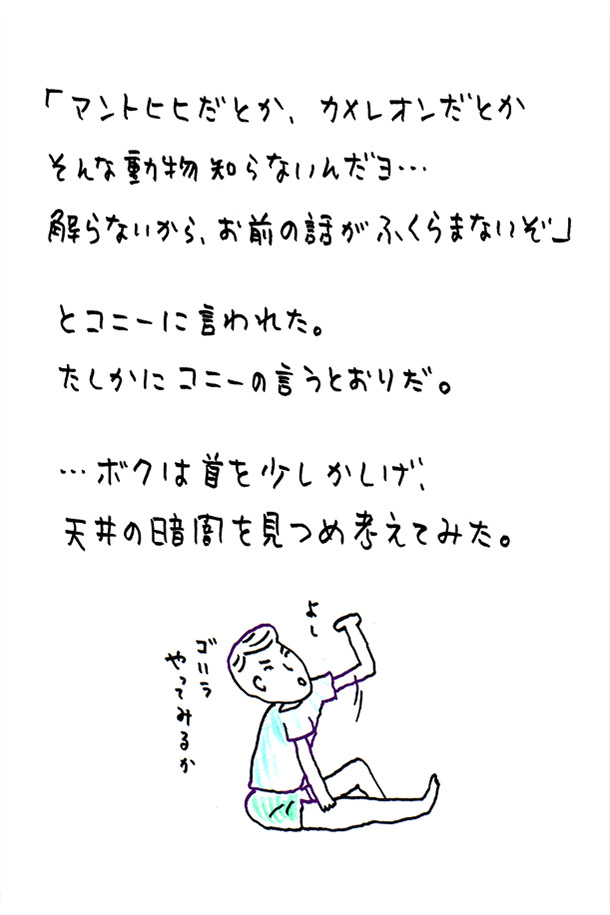 「マントヒヒだとか、カメレオンだとか
そんな動物知らないんだヨ…
解らないから、お前の話がふくらまないぞ」
とコニーに言われた。
たしかにコニーの言うとおりだ。
…ボクは首を少しかしげ、
天井の暗闇を見つめ考えてみた。
よし
ゴリラ
やってみるか